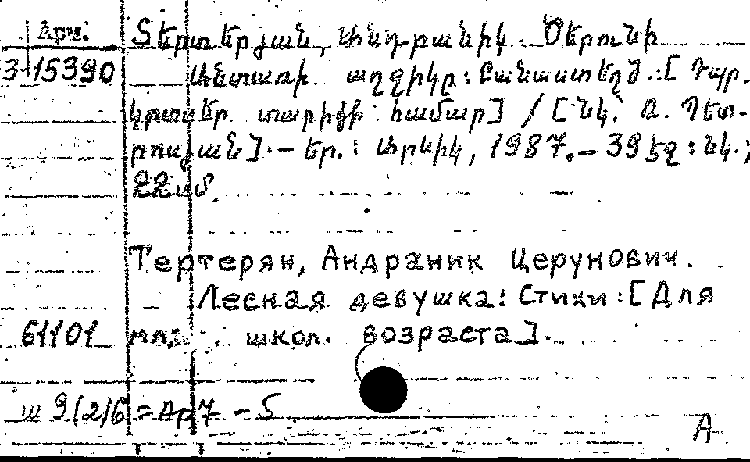 Арм.
Տերտերյան, Անդրանիկ Ծերունի
3-15390 Անտառի աղջիկը: Բանաստեղծ.:[Դպր.
կրտսեր տարիքի համար] / [Նկ՝ Ա. Պետ-
րոսյան].— Եր.: Արևիկ, 1987.— 39 էջ: նկ.;
22 սմ.
Тертерян, Андраник Церунович.
Лесная девушка: Стихи:[Для
61101 мл. школ. возраста].
ш 9(2)6=Ар7-5
А